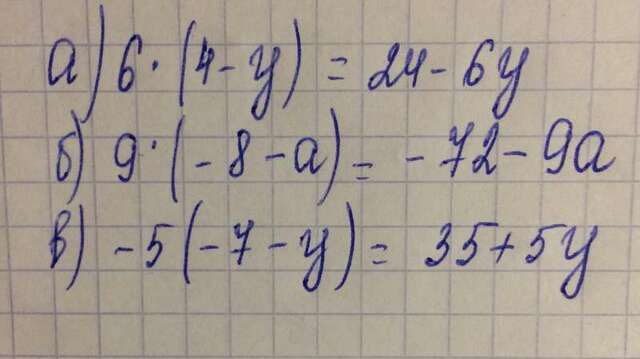 а) 6·(4-y) = 24-6y
б) 9·(-8-а) = -72-9а
в) -5(-7-y) = 35+5y